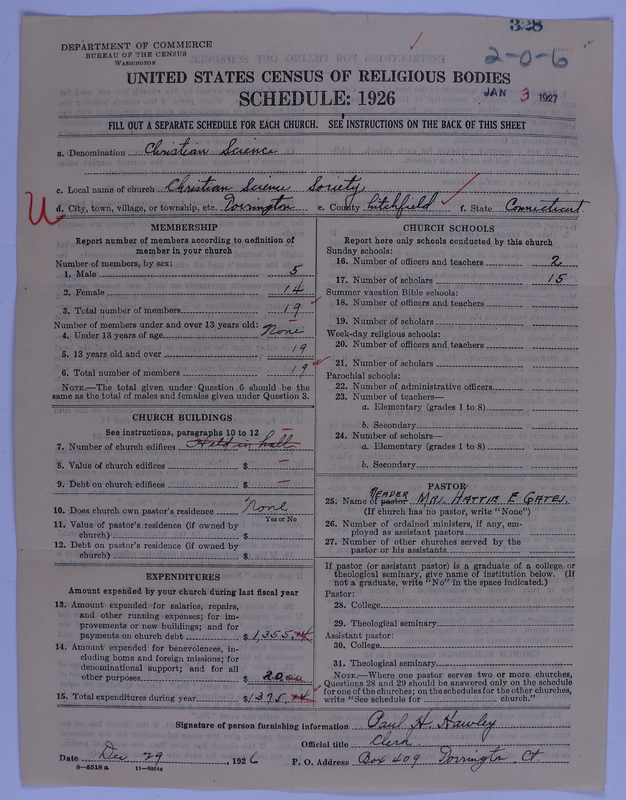 328
DEPARTMENT OF COMMERCE
BUREAU OF THE CENSUS
WASHINGTON
2-0-6
UNITED STATES CENSUS OF RELIGIOUS BODIES
SCHEDULE: 1926
JAN 3 1927
FILL OUT A SEPARATE SCHEDULE FOR EACH CHURCH. SEE INSTRUCTIONS ON THE BACK OF THIS SHEET
a. Denomination Christian Science
c. Local name of church Christian Science Society
U
d. City, town, village, or township, etc. Torrington e. County Litchfield f. State Connecticut
MEMBERSHIP
Report number of members according to definition of
member in your church
Number of members, by sex:
1. Male 5
2. Female 14
3. Total number of members 19
Number of members under and over 13 years old:
4. Under 13 years of age None
5. 13 years old and over 19
6. Total number of members 19
NOTE.—The total given under Question 6 should be the
same as the total of males and females given under Question 3.
CHURCH BUILDINGS
See instructions, paragraphs 10 to 12
7. Number of church edifices Held in hall
8. Value of church edifices $ —
9. Debt on church edifices $ —
10. Does church own pastor's residence None
Yes or No
11. Value of pastor's residence (if owned by
church) $
12. Debt on pastor's residence (if owned by
church) $
EXPENDITURES
Amount expended by your church during last fiscal year
13. Amount expended for salaries, repairs,
and other running expenses; for im-
provements or new buildings; and for
payments on church debt $ 1,355.44
14. Amount expended for benevolences, in-
cluding home and foreign missions; for
denominational support; and for all
other purposes $ 20.00
15. Total expenditures during year $ 1375.44
CHURCH SCHOOLS
Report here only schools conducted by this church
Sunday schools:
16. Number of officers and teachers 2
17. Number of scholars 15
Summer vacation Bible schools:
18. Number of officers and teachers
19. Number of scholars
Week-day religious schools:
20. Number of officers and teachers
21. Number of scholars
Parochial schools:
22. Number of administrative officers
23. Number of teachers—
a. Elementary (grades 1 to 8)
b. Secondary
24. Number of scholars—
a. Elementary (grades 1 to 8)
b. Secondary
PASTOR
READER
25. Name of pastor MRS. HATTIE E GATES.
(If church has no pastor, write "None")
26. Number of ordained ministers, if any, em-
ployed as assistant pastors
27. Number of other churches served by the
pastor or his assistants
If pastor (or assistant pastor) is a graduate of a college or
theological seminary, give name of institution below. (If
not a graduate, write "No" in the space indicated.)
Pastor:
28. College
29. Theological seminary
Assistant pastor:
30. College
31. Theological seminary
NOTE.—Where one pastor serves two or more churches,
Questions 28 and 29 should be answered only on the schedule
for one of the churches; on the schedules for the other churches,
write "See schedule for church."
Signature of person furnishing information Paul H. Hawley
Official title Clerk
Date Dec 29, 1926 P. O. Address Box 409 Torrington Ct
8—5518a